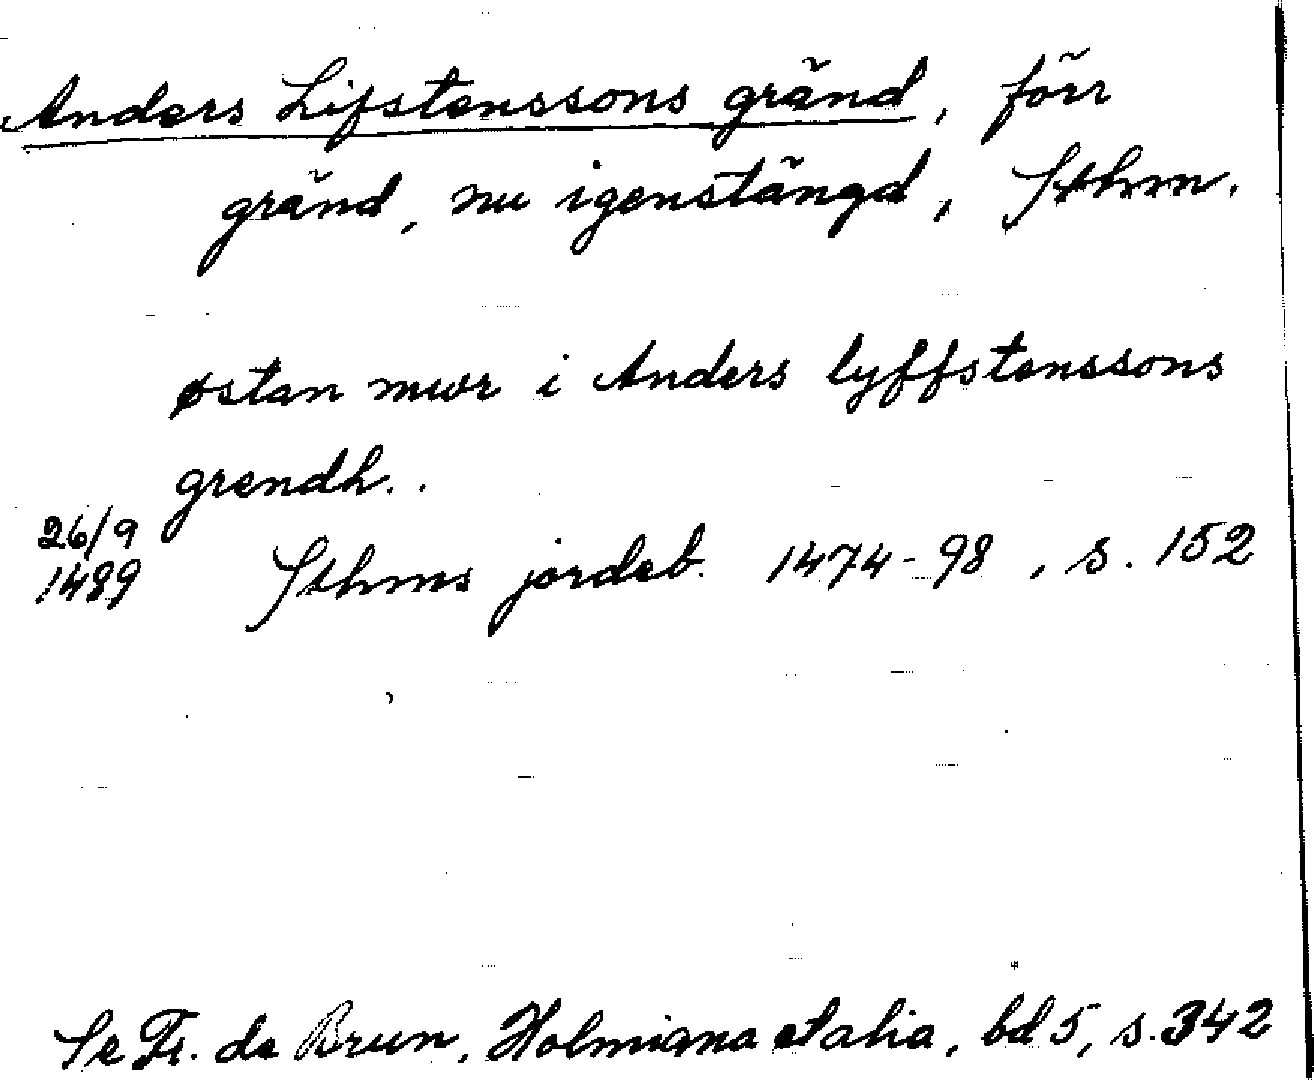 Anders Lifstenssons gränd, förr
gränd, nu igenstängd, Sthm.
østan mwr i Anders lyffstenssons
grendh..
26/9
1489
Sthms jordeb. 1474-98, s. 152
Se Fr. de Brun, Holmiana et alia, bd 5, s. 342